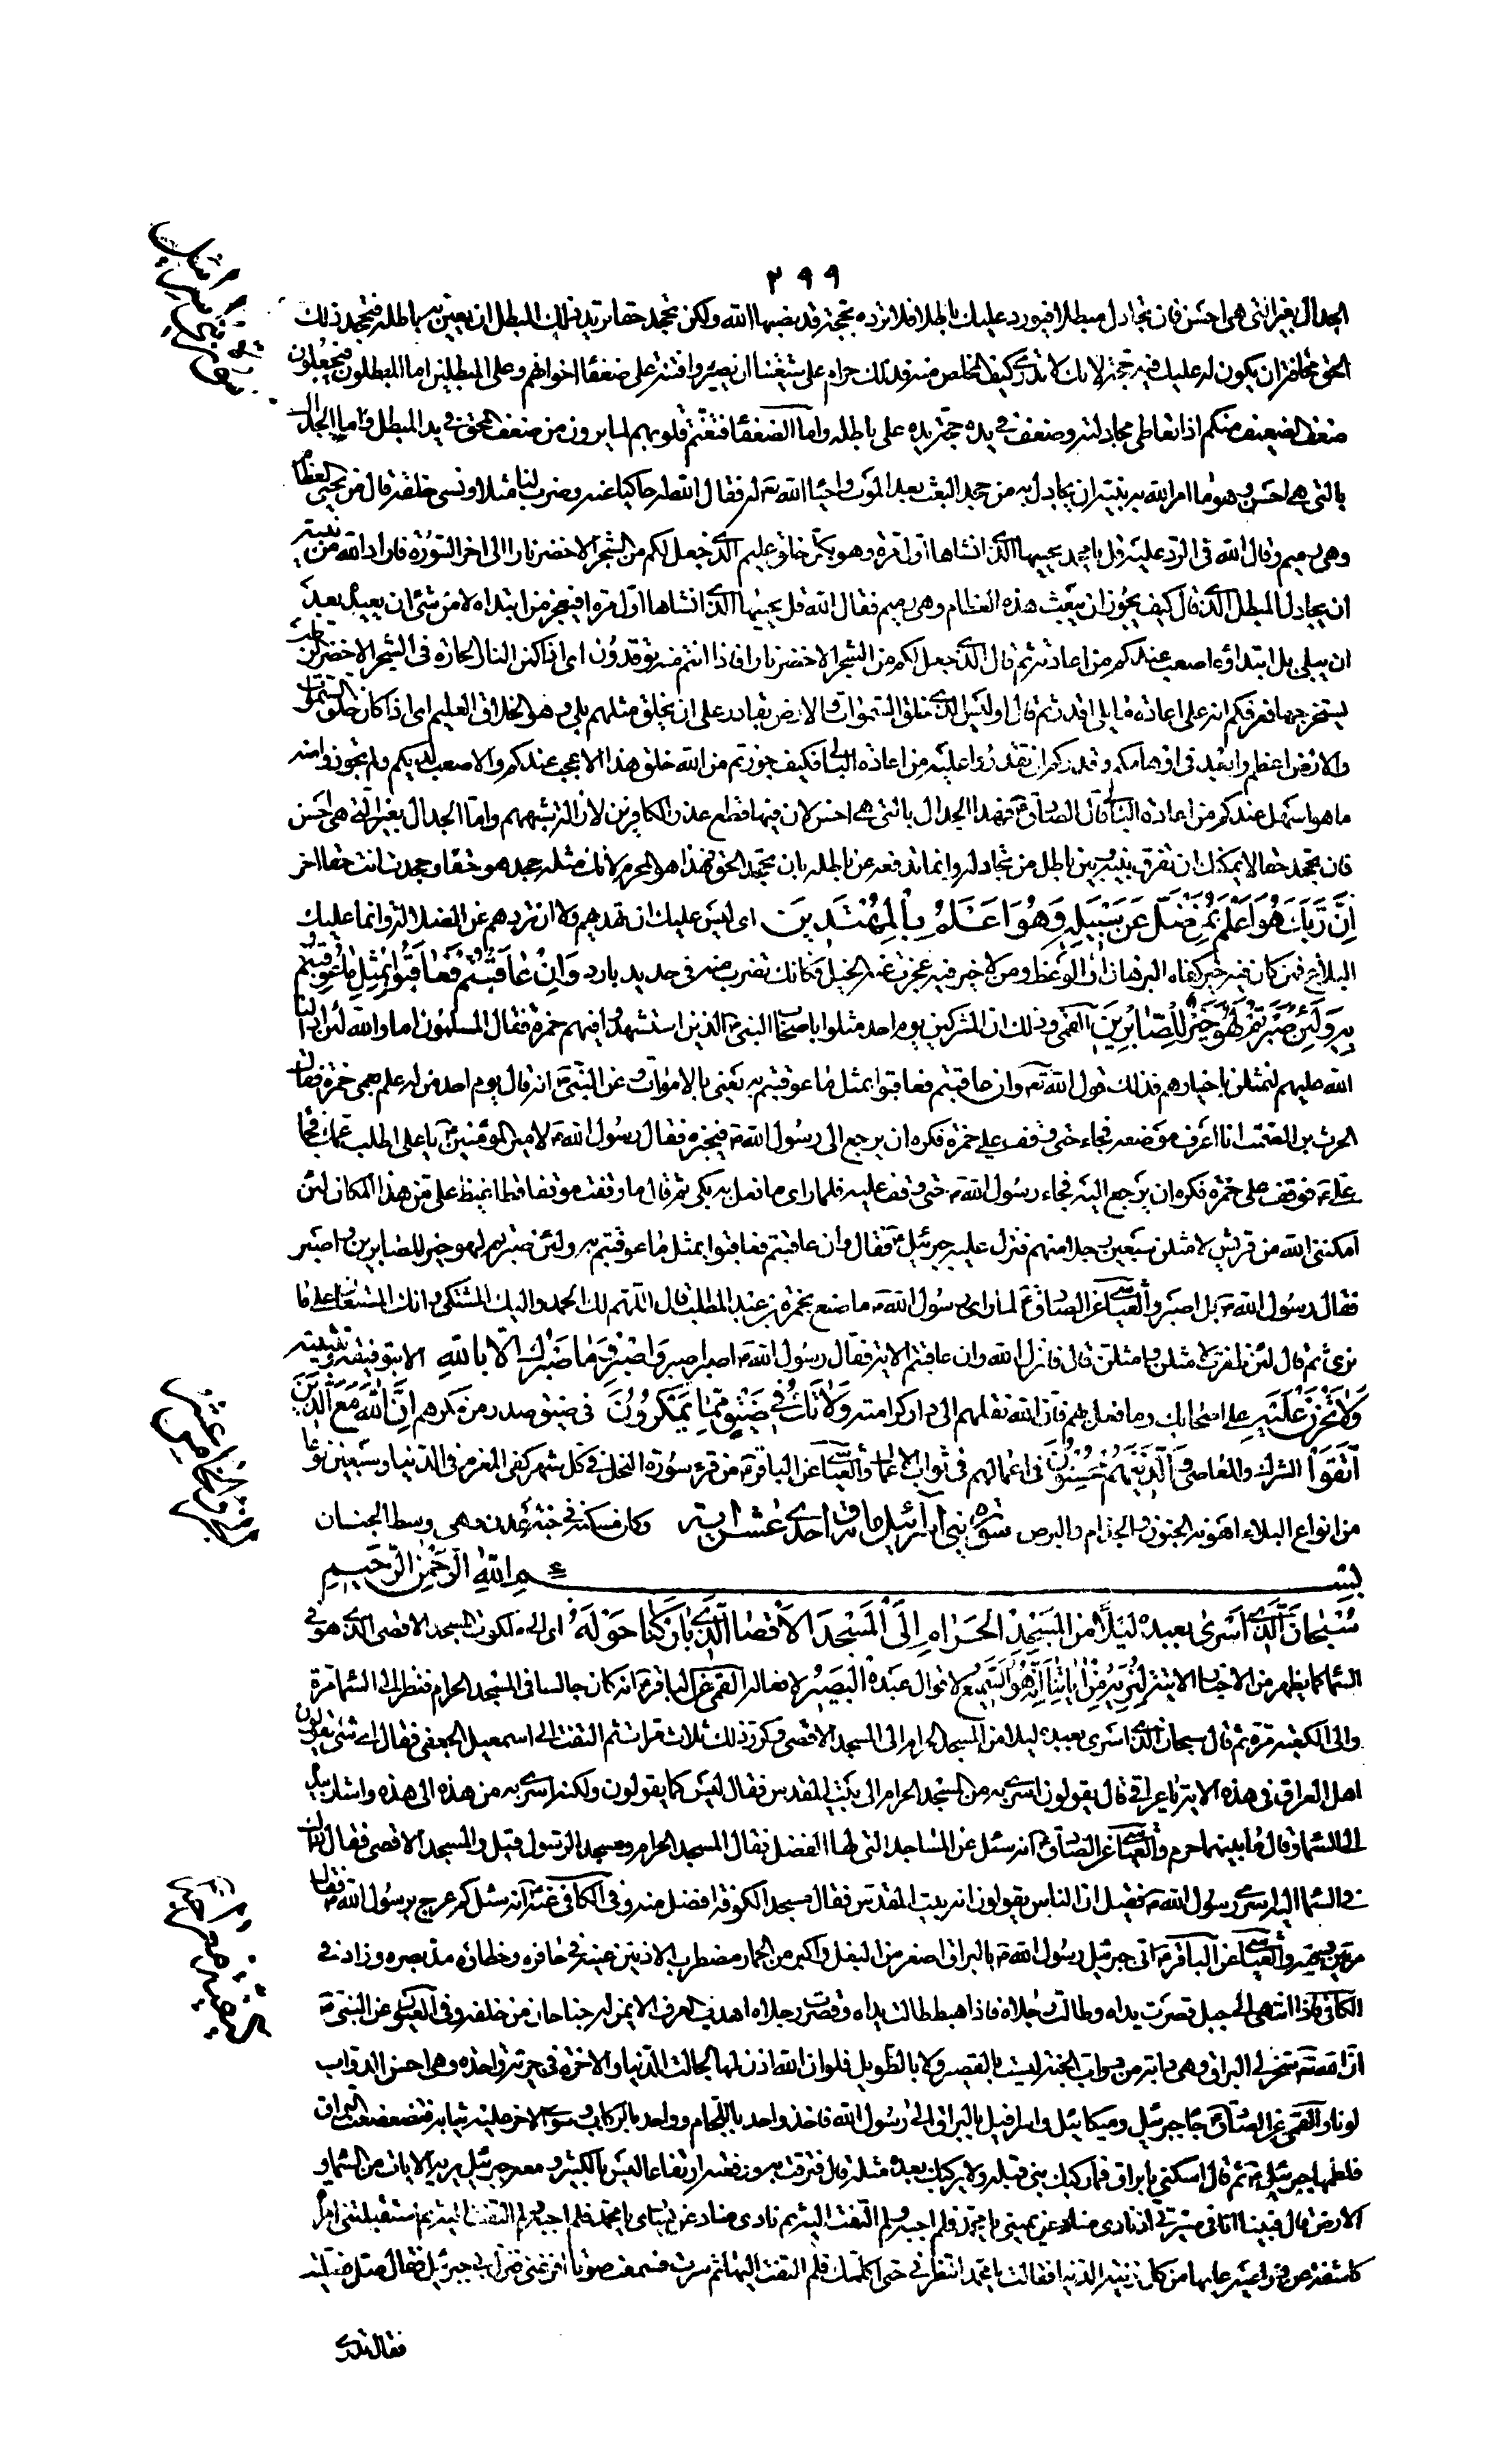 ٢٩٩
الجدال بغير التي هي احسن فان تجادل مبطلا فيورد عليك باطلا فلا ترده بحجة قد نصبها الله ولكن تجحد حقا يريد ذلك المبطل ان يعين به باطله فتجحد ذلك
الحق مخافة ان يكون له عليك فيه حجة لانك لا تدري كيف المخلص منه فذلك حرام على شيعتنا ان يصيروا فتنة على ضعفاء اخوانهم وعلى المبطلين اما المبطلون فيجعلون
ضعف الضعيف منكم اذا تعاطى مجادلته وضعف في يده حجة له على باطله واما الضعفاء فتغتم قلوبهم لما يرون من ضعف المحق في يد المبطل واما الجدال
بالتي هي احسن وهو ما امر الله به نبيه ان يجادل به من جحد البعث بعد الموت واحياء الله تع له فقال الله له حاكيا عنه وضرب لنا مثلا ونسي خلقه قال من يحيي العظام
وهي رميم وقال الله في الرد عليه قل يا محمد يحييها الذي انشاها اول مرة وهو بكل خلق عليم الذي جعل لكم من الشجر الاخضر نارا الى اخر السورة فاراد الله من نبيه
ان يجادل المبطل الذي قال كيف يجوز ان يبعث هذه العظام وهي رميم فقال الله قل يحييها الذي انشاها اول مرة افيعجز من ابتداه لا من شئ ان يعيده بعد
ان يبلى بل ابتداؤه اصعب عندكم من اعادته ثم قال الذي جعل لكم من الشجر الاخضر نارا فاذا انتم منه توقدون اى اذا كمن النار الحارة في الشجر الاخضر الرطب
يستخرجها فعرفكم انه على اعادة ما بلى اقدر ثم قال اوليس الذي خلق السموات والارض بقادر على ان يخلق مثلهم بلى وهو الخلاق العليم اى اذا كان خلق السموات
والارض اعظم وابعد في اوهامكم وقدركم ان تقدروا عليه من اعادة البالي فكيف جوزتم من الله خلق هذا الاعجب عندكم والاصعب لديكم ولم تجوزوا منه
ما هو اسهل عندكم من اعادة البالي قال الصادق ع فهذا الجدال بالتي هي احسن لان فيها قطع عذر الكافرين وازالة شبههم واما الجدال بغير التي هي احسن
فان تجحد حقا لا يمكنك ان تفرق بينه وبين باطل من تجادله وانما تدفعه عن باطله بان تجحد الحق فهذا هو المحرم لانك مثله جحد هو حقا وجحدت انت حقا اخر
إِنَّ رَبَّكَ هُوَ أَعْلَمُ بِمَنْ ضَلَّ عَنْ سَبِيلِهِ وَهُوَ أَعْلَمُ بِالْمُهْتَدِينَ اى ليس عليك ان تهديهم ولا ان تردهم عن الضلالة وانما عليك
البلاغ فمن كان فيه خير كفاه البرهان او الوعظ ومن لا خير فيه عجزت عنه الحيل فكانك تضرب منه في حديد بارد وَإِنْ عَاقَبْتُمْ فَعَاقِبُوا بِمِثْلِ مَا عُوقِبْتُمْ
بِهِ وَلَئِنْ صَبَرْتُمْ لَهُوَ خَيْرٌ لِلصَّابِرِينَ القمي وذلك ان المشركين يوم احد مثلوا باصحاب النبي ص الذين استشهدوا فيهم حمزة فقال المسلمون اما والله لئن ادالنا
الله عليهم لنمثلن باخيارهم فذلك قول الله تع وان عاقبتم فعاقبوا بمثل ما عوقبتم به يعني بالاموات وعن النبي ص انه قال يوم احد من له علم بعمي حمزة فقال
الحرث بن الصمت انا اعرف موضعه فجاء حتى وقف على حمزة فكره ان يرجع الى رسول الله ص فيخبره فقال رسول الله ص لامير المؤمنين ع يا علي اطلب عمك فجاء
علي ع فوقف على حمزة فكره ان يرجع اليه فجاء رسول الله ص حتى وقف عليه فلما راى ما فعل به بكى ثم قال ما وقفت موقفا قط اغيظ علي من هذا المكان لئن
امكنني الله من قريش لامثلن سبعين رجلا منهم فنزل عليه جبرئيل ع فقال وان عاقبتم فعاقبوا بمثل ما عوقبتم به ولئن صبرتم لهو خير للصابرين واصبر
فقال رسول الله ص بل اصبر والعياشي عن الصادق ع لما راى رسول الله ص ما صنع بحمزة بن عبد المطلب قال اللهم لك الحمد واليك المشتكى وانت المستعان على ما
نرى ثم قال لئن ظفرت لامثلن ولامثلن قال فانزل الله وان عاقبتم الاية فقال رسول الله ص اصبر اصبر وَاصْبِرْ وَمَا صَبْرُكَ إِلَّا بِاللهِ الا بتوفيقه وتثبيته
وَلَا تَحْزَنْ عَلَيْهِمْ على اصحابك وما فعل بهم فان الله نقلهم الى دار كرامته وَلَا تَكُ فِي ضَيْقٍ مِمَّا يَمْكُرُونَ في ضيق صدر من مكرهم إِنَّ اللهَ مَعَ الَّذِينَ
اتَّقَوْا الشرك والمعاصي وَالَّذِينَ هُمْ مُحْسِنُونَ في اعمالهم في ثواب الاعمال والعياشي عن الباقر ع من قرء سورة النحل في كل شهر كفى المغرم في الدنيا وسبعين نوعا
من انواع البلاء اهونه الجنون والجذام والبرص سورة بني اسرائيل مائة واحدى عشر اية وكان مسكنه في جنة عدن وهي وسط الجنان
بسم الله الرحمن الرحيم
سُبْحَانَ الَّذِي أَسْرَى بِعَبْدِهِ لَيْلًا مِنَ الْمَسْجِدِ الْحَرَامِ إِلَى الْمَسْجِدِ الْأَقْصَا الَّذِي بَارَكْنَا حَوْلَهُ اى الى ملكوت المسجد الاقصى الذي هو في
السماء كما يظهر من الاخبار الاتية لِنُرِيَهُ مِنْ آيَاتِنَا إِنَّهُ هُوَ السَّمِيعُ لاقوال عبده الْبَصِيرُ لافعاله القمي عن الباقر ع انه كان جالسا في المسجد الحرام فنظر الى السماء مرة
والى الكعبة مرة ثم قال سبحان الذي اسرى بعبده ليلا من المسجد الحرام الى المسجد الاقصى وكرر ذلك ثلاث مرات ثم التفت الى اسمعيل الجعفي فقال اى شئ يقولون
اهل العراق في هذه الاية يا عراقي قال يقولون اسرى به من المسجد الحرام الى بيت المقدس فقال ليس كما يقولون ولكنه اسرى به من هذه الى هذه واشار بيده
الى السماء وقال ما بينهما حرم والعياشي عن الصادق ع انه سئل عن المساجد التي لها الفضل فقال المسجد الحرام ومسجد الرسول قيل والمسجد الاقصى فقال ذاك
في السماء اليه اسرى رسول الله ص فقيل ان الناس يقولون انه بيت المقدس فقال مسجد الكوفة افضل منه وفي الكافي عنه ع انه سئل كم عرج برسول الله ص فقال
مرتين والعياشي عن الباقر ع اتى جبرئيل رسول الله ص بالبراق اصغر من البغل واكبر من الحمار مضطرب الاذنين عينه في حافره وخطاه مد بصره وزاد في
الكافي فاذا انتهى الى جبل قصرت يداه وطالت رجلاه فاذا هبط طالت يداه وقصرت رجلاه اهدب العرف الايمن له جناحان من خلفه وفي العيون عن النبي ص
ان الله تع سخر لي البراق وهي دابة من دواب الجنة ليست بالقصير ولا بالطويل فلو ان الله اذن لها لجالت الدنيا والاخرة في جرية واحدة وهي احسن الدواب
لونا والقمي عن الصادق ع جاء جبرئيل وميكائيل واسرافيل بالبراق الى رسول الله فاخذ واحد باللجام وواحد بالركاب وسوى الاخر عليه ثيابه فتضعضعت البراق
فلطمها جبرئيل ع ثم قال اسكني يا براق فما ركبك نبي قبله ولا يركبك بعده مثله قال فرقت به ورفعته ارتفاعا ليس بالكثير ومعه جبرئيل يريه الايات من السماء و
الارض قال فبينا انا في مسيري اذ نادى مناد عن يميني يا محمد فلم اجبه ولم التفت اليه ثم نادى مناد عن يساري يا محمد فلم اجبه ولم التفت اليه ثم استقبلتني امراة
كاشفة عن ذراعيها عليها من كل زينة الدنيا فقالت يا محمد انتظرني حتى اكلمك فلم التفت اليها ثم سرت فسمعت صوتا افزعني فنزل بي جبرئيل فقال صل فصليت